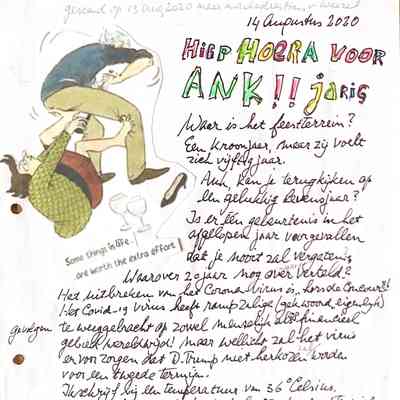 14 Augustus 2020
HIEP HOERA VOOR
ANK!! jarig
Waar is het feestterrein?
Een kroonjaar, maar zij voelt
zich vijftig jaar.
Ank kan je terugkijken op
een gelukkig levensjaar?
Is er één gebeurtenis in het
afgelopen jaar voorgevallen
dat je nooit zal vergeten,
Some things in life...
are worth the extra effort
Waarover ze jaar nog over verteld?
Het uitbreken van het Corona virus is, hors de Concours!
Het Covid-19 virus heeft rampzalige (gekwoord eigenlijk)
gevolgen te weeggebracht op zowel menselijk als financieel
gebied wereldwijd! maar wellicht zal het virus
ervoor zorgen dat D. Trump niet herkozen worden
voor een tweede termijn.
Ik schrijf bij een temperatuur van 36° Celsius.